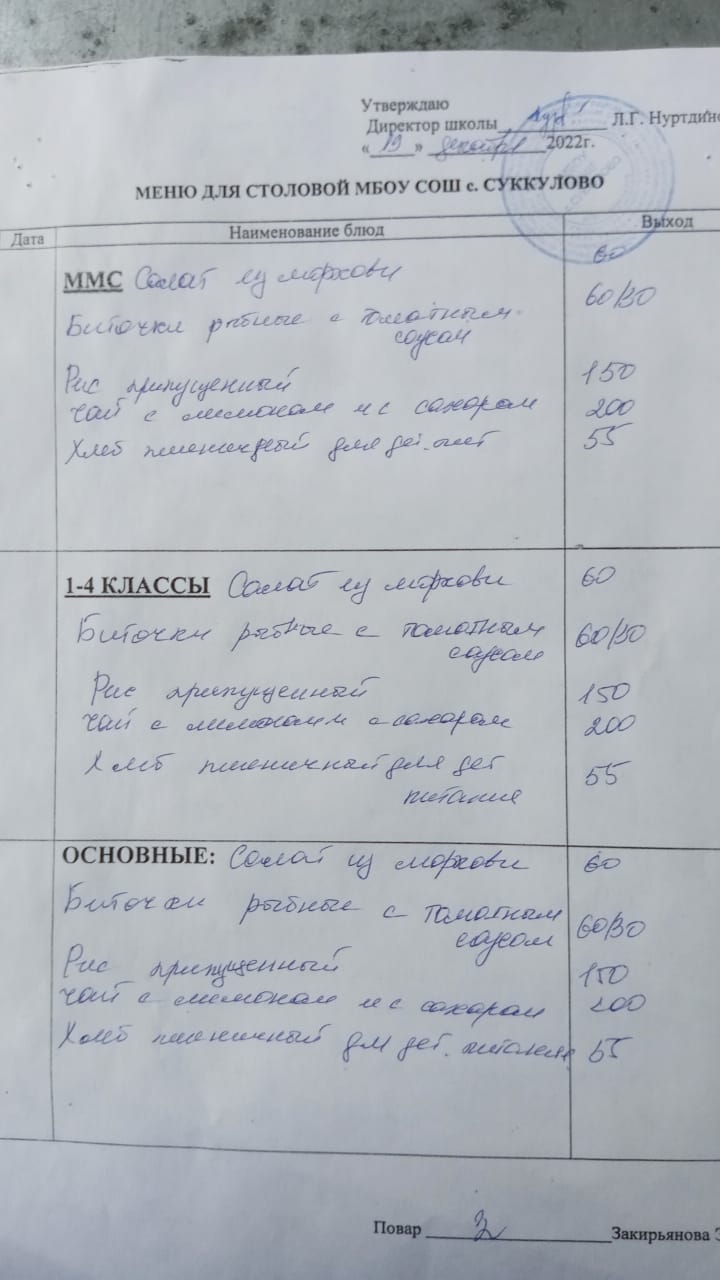 Утверждаю
Директор школы Л.Г. Нуртдино
«19» декабря 2022г.
МЕНЮ ДЛЯ СТОЛОВОЙ МБОУ СОШ с. СУККУЛОВО
Дата Наименование блюд Выход
ММС Салат из моркови 60
Биточки рыбные с томатным 60/30
соусом
Рис припущенный 150
Чай с лимоном и с сахаром 200
Хлеб пшеничный для дет. пит 55
1-4 КЛАССЫ Салат из моркови 60
Биточки рыбные с томатным 60/30
соусом
Рис припущенный 150
Чай с лимоном и с сахаром 200
Хлеб пшеничный для дет 55
питания
ОСНОВНЫЕ: Салат из моркови 60
Биточки рыбные с томатным 60/30
соусом
Рис припущенный 150
Чай с лимоном и с сахаром 200
Хлеб пшеничный для дет. питания 55
Повар Закирьянова З